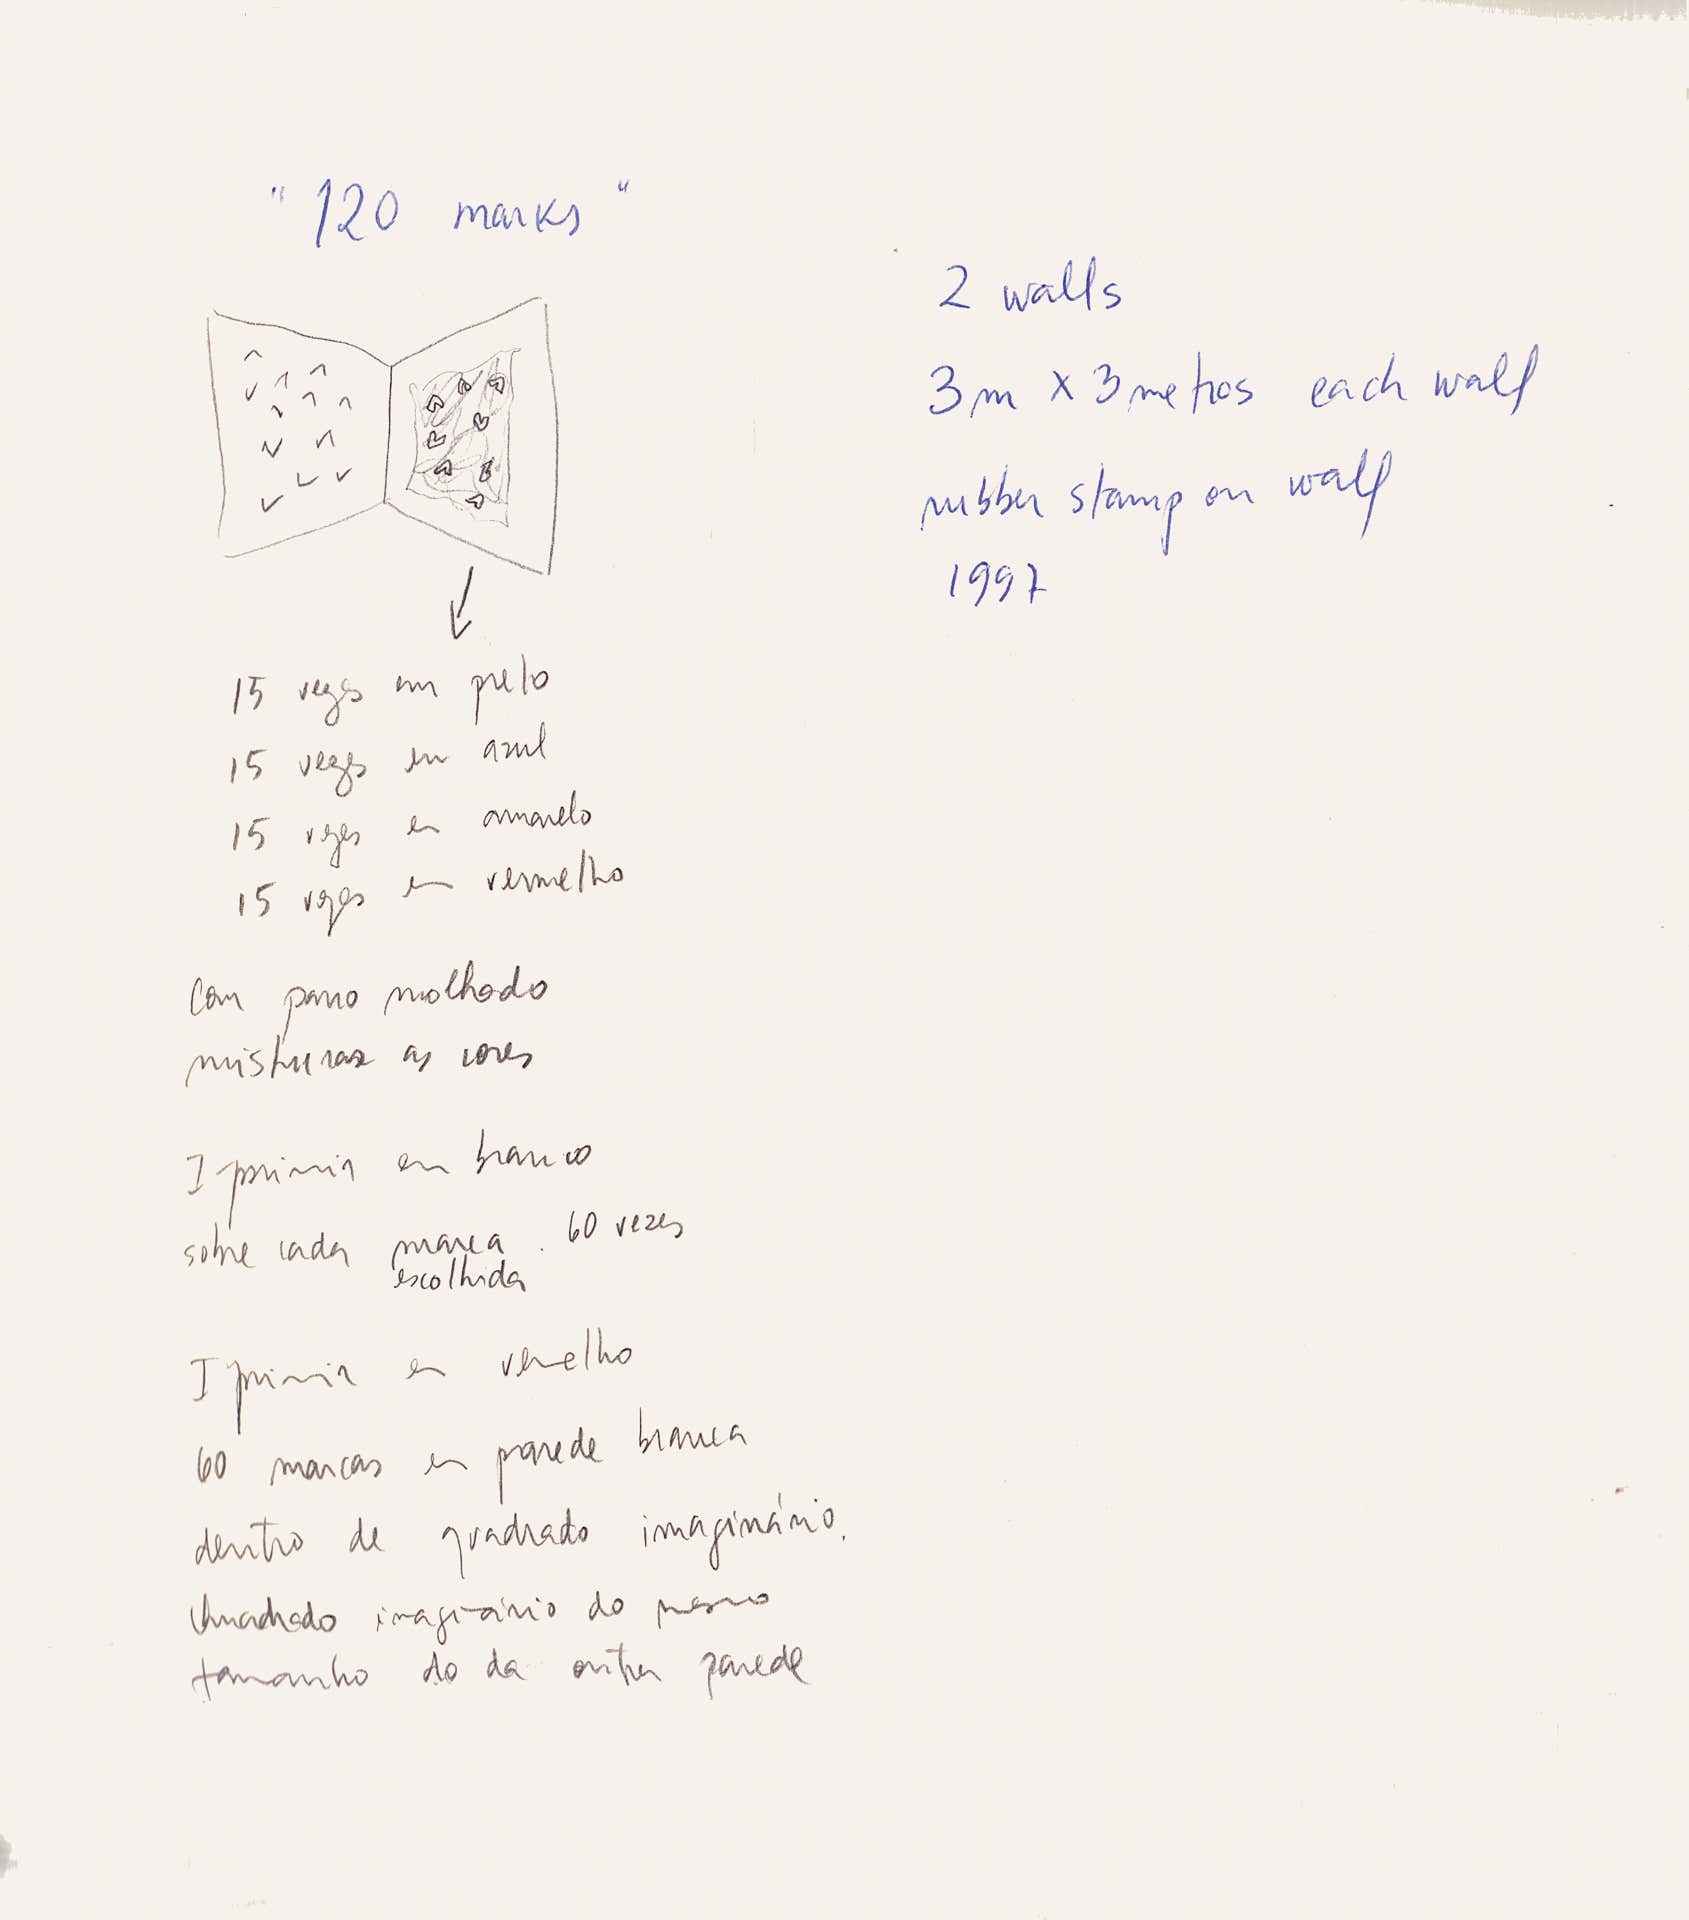 "120 marks"
2 walls
3m x 3metros each wall
rubber stamp on wall
1997
15 vezes em preto
15 vezes em azul
15 vezes em amarelo
15 vezes em vermelho
Com pano molhado
misturar as cores
Imprimir em branco
sobre cada marca . 60 vezes
escolhida
Imprimir em vermelho
60 marcas em parede branca
dentro de quadrado imaginário.
Quadrado imaginário do mesmo
tamanho do da outra parede